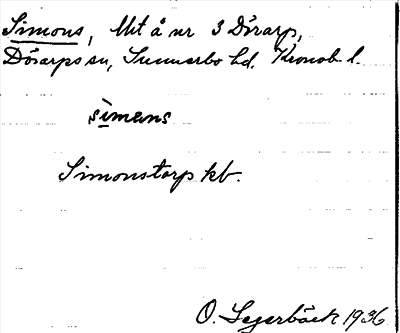 Simons, Utt å nr 3 Dörarp,
Dörarps sn, Sunnerbo hd. Kronob. l.
sìmans
Simonstorp kb.
O. Segerbäck 1936